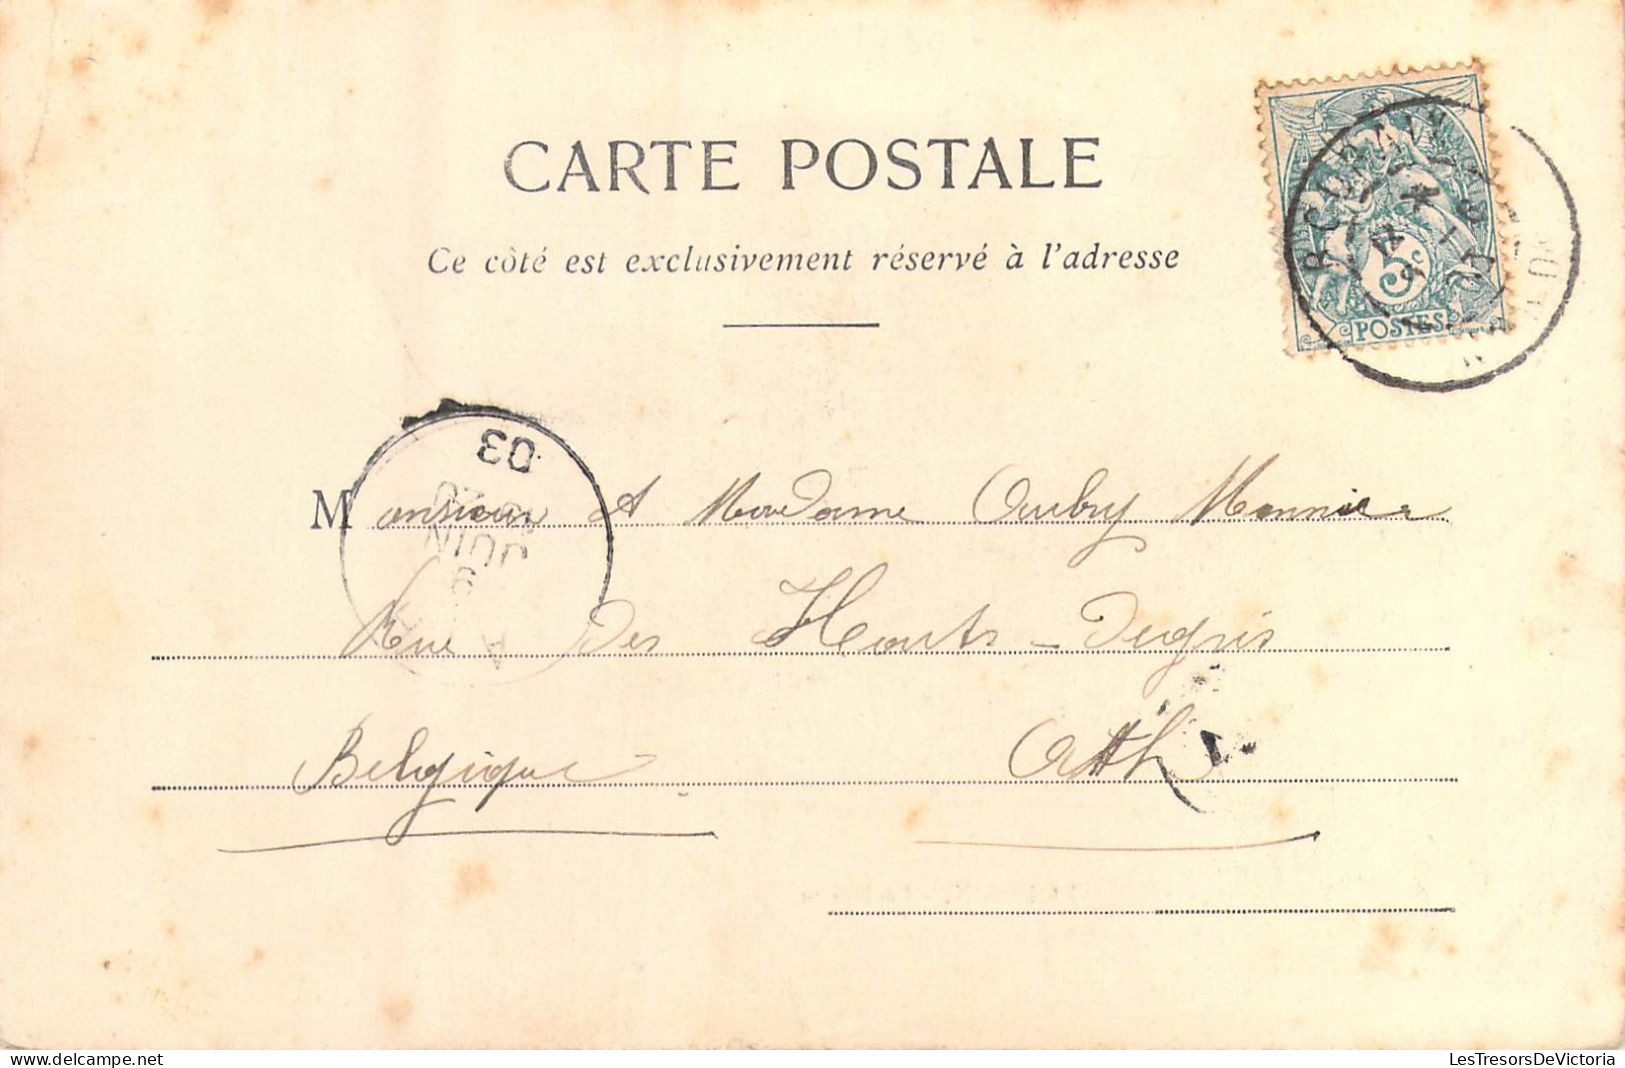 CARTE POSTALE
Ce côté est exclusivement réservé à l'adresse
5c
POSTES
03
JUIN
9
Monsieur & Madame Aubry Monnier
Rue des Hauts-Degrés
Belgique Ath
LesTresorsDeVictoria